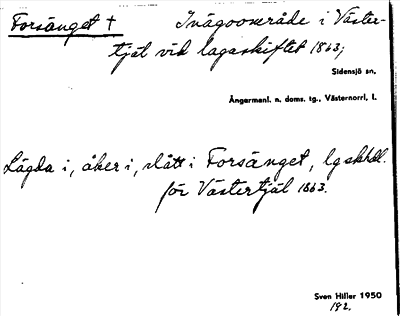 Forsänget † Inägoområde i Väster-
tjäl vid lagaskiftet 1863;
Sidensjö sn,
Ångermanl. n. doms. tg., Västernorrl. l.
Lägda i, åker i, slått i Forsänget, lgskhdl.
för Västertjäl 1863.
Sven Hiller 1950
192.